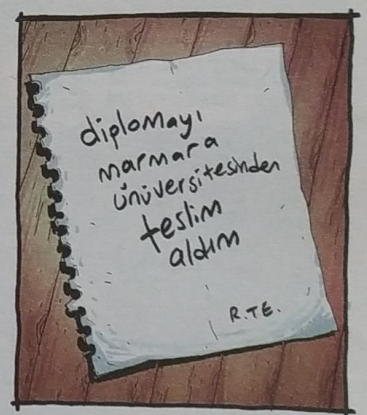 diplomayı
marmara
üniversitesinden
teslim
aldım
R.T.E.